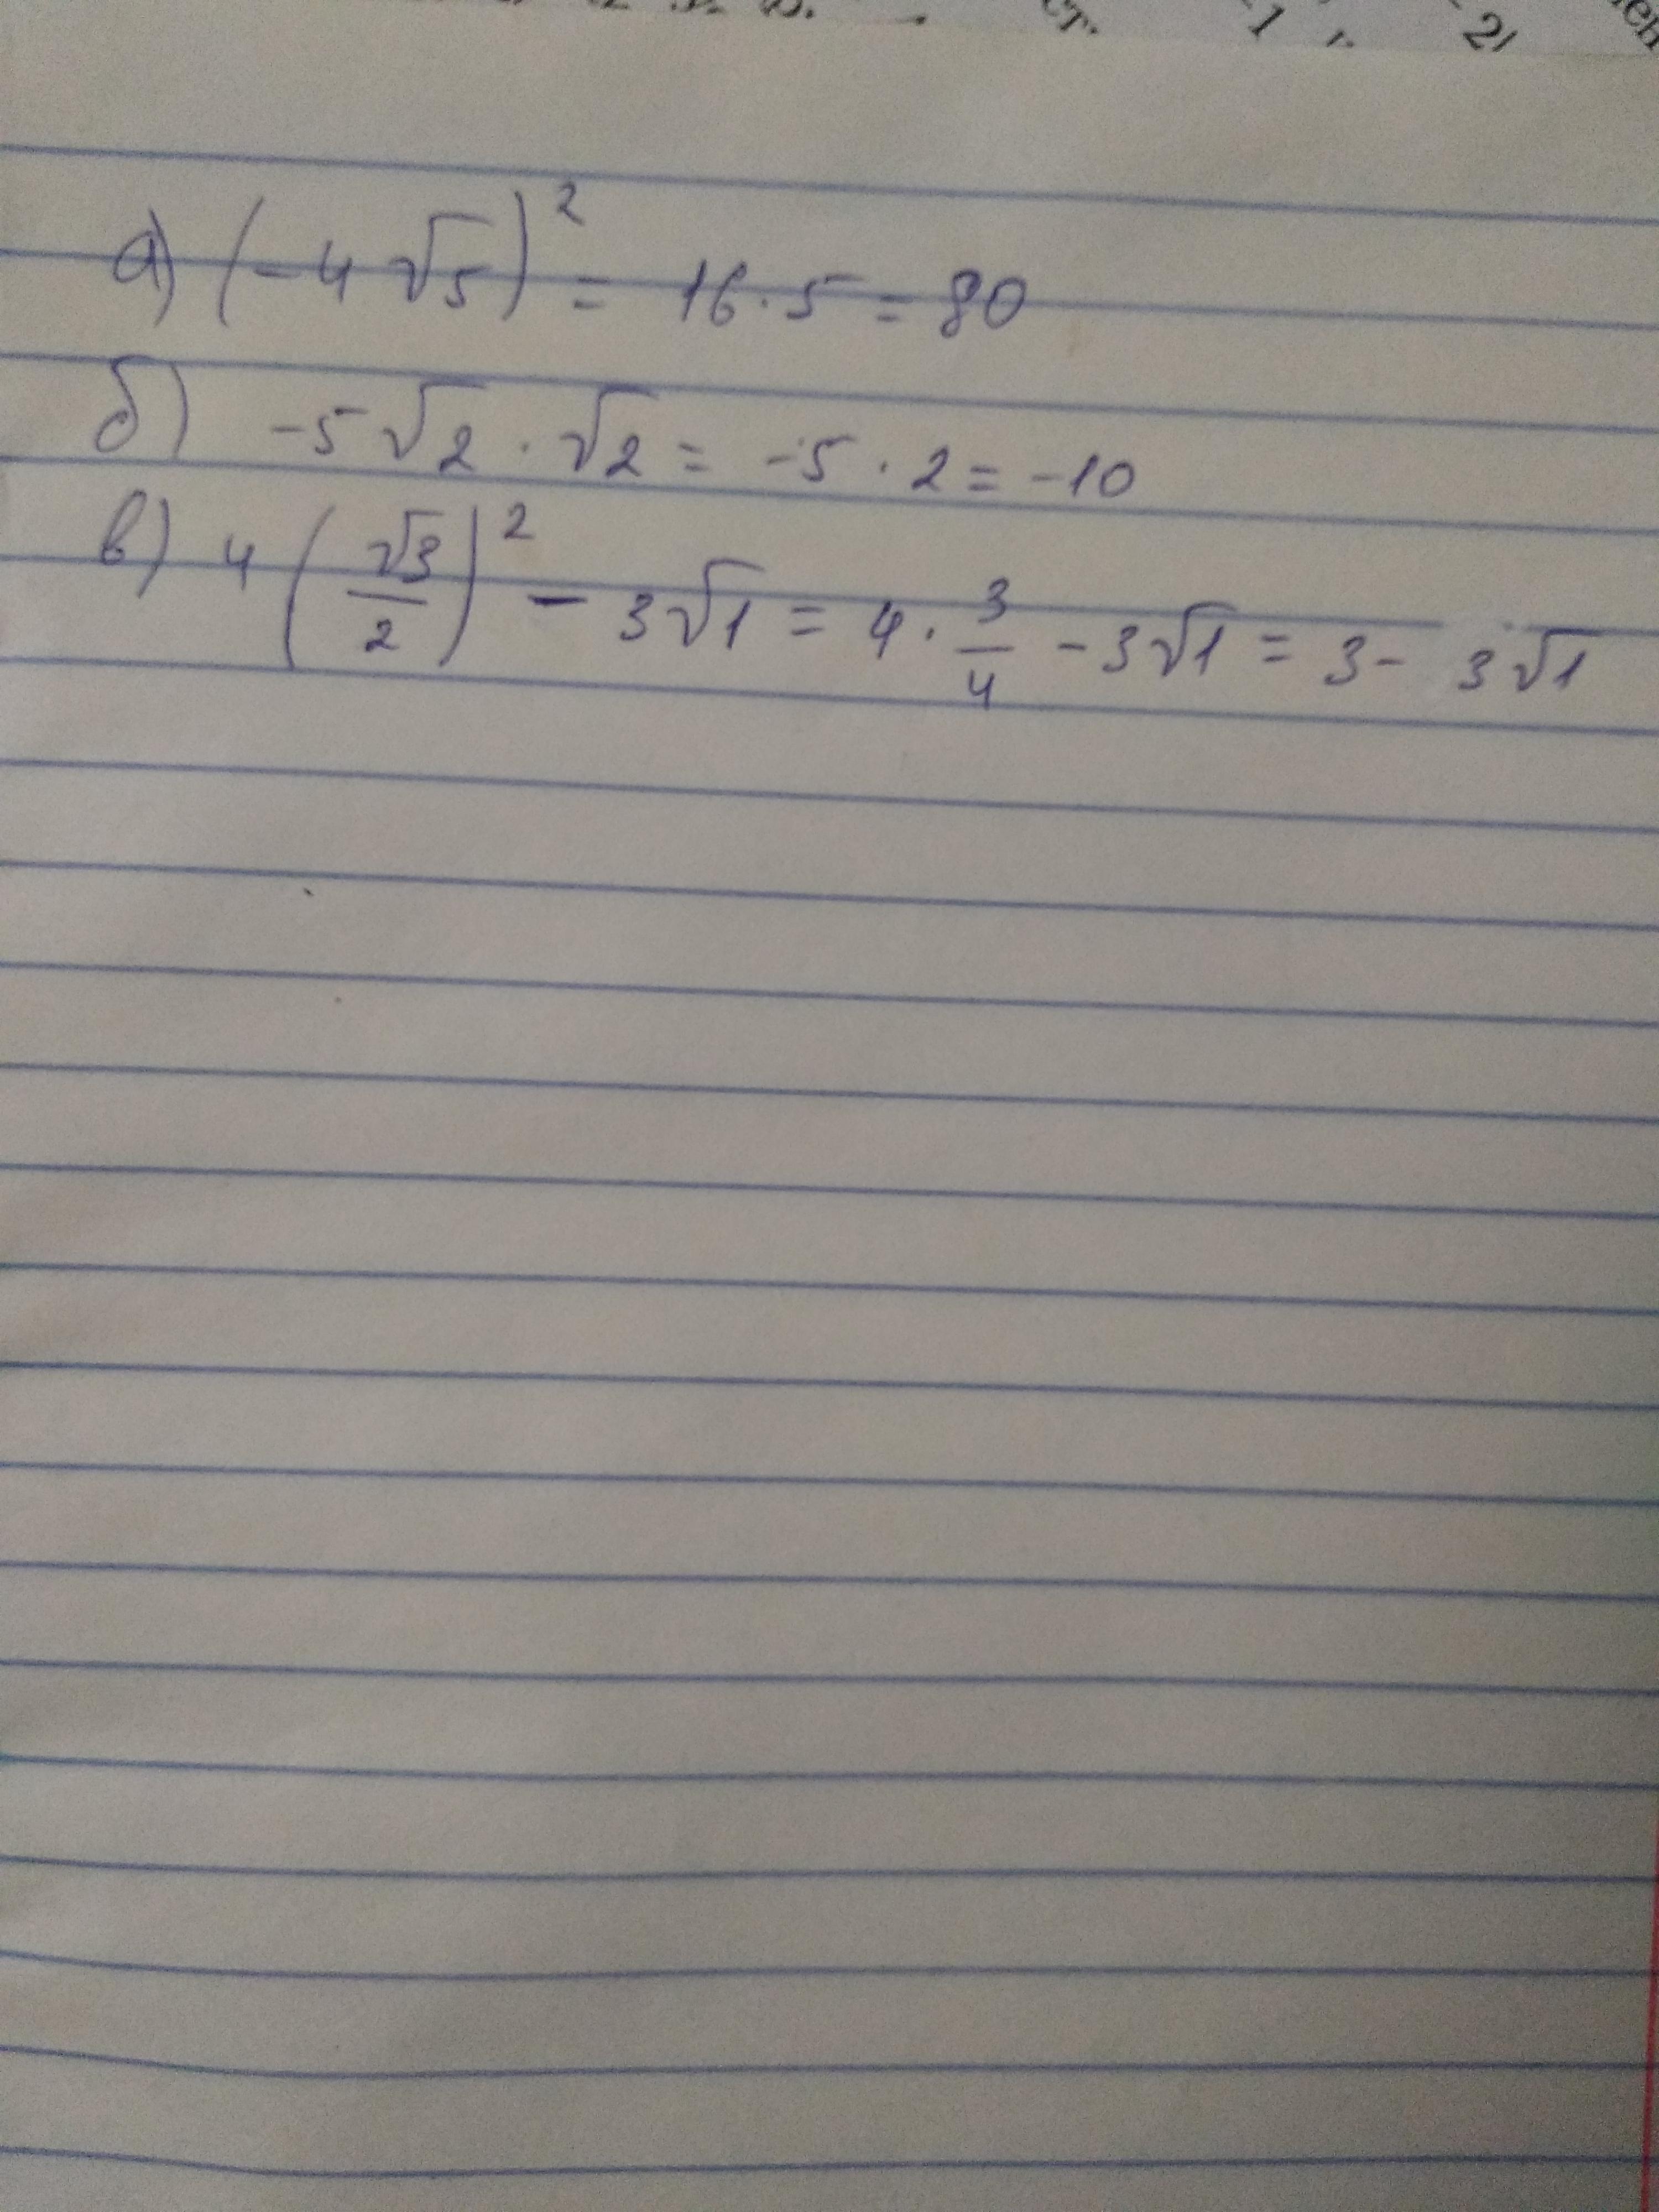 а) (-4√5)² = 16·5 = 80
б) -5√2 · √2 = -5 · 2 = -10
в) 4(√3/2)² - 3√1 = 4 · 3/4 - 3√1 = 3 - 3√1